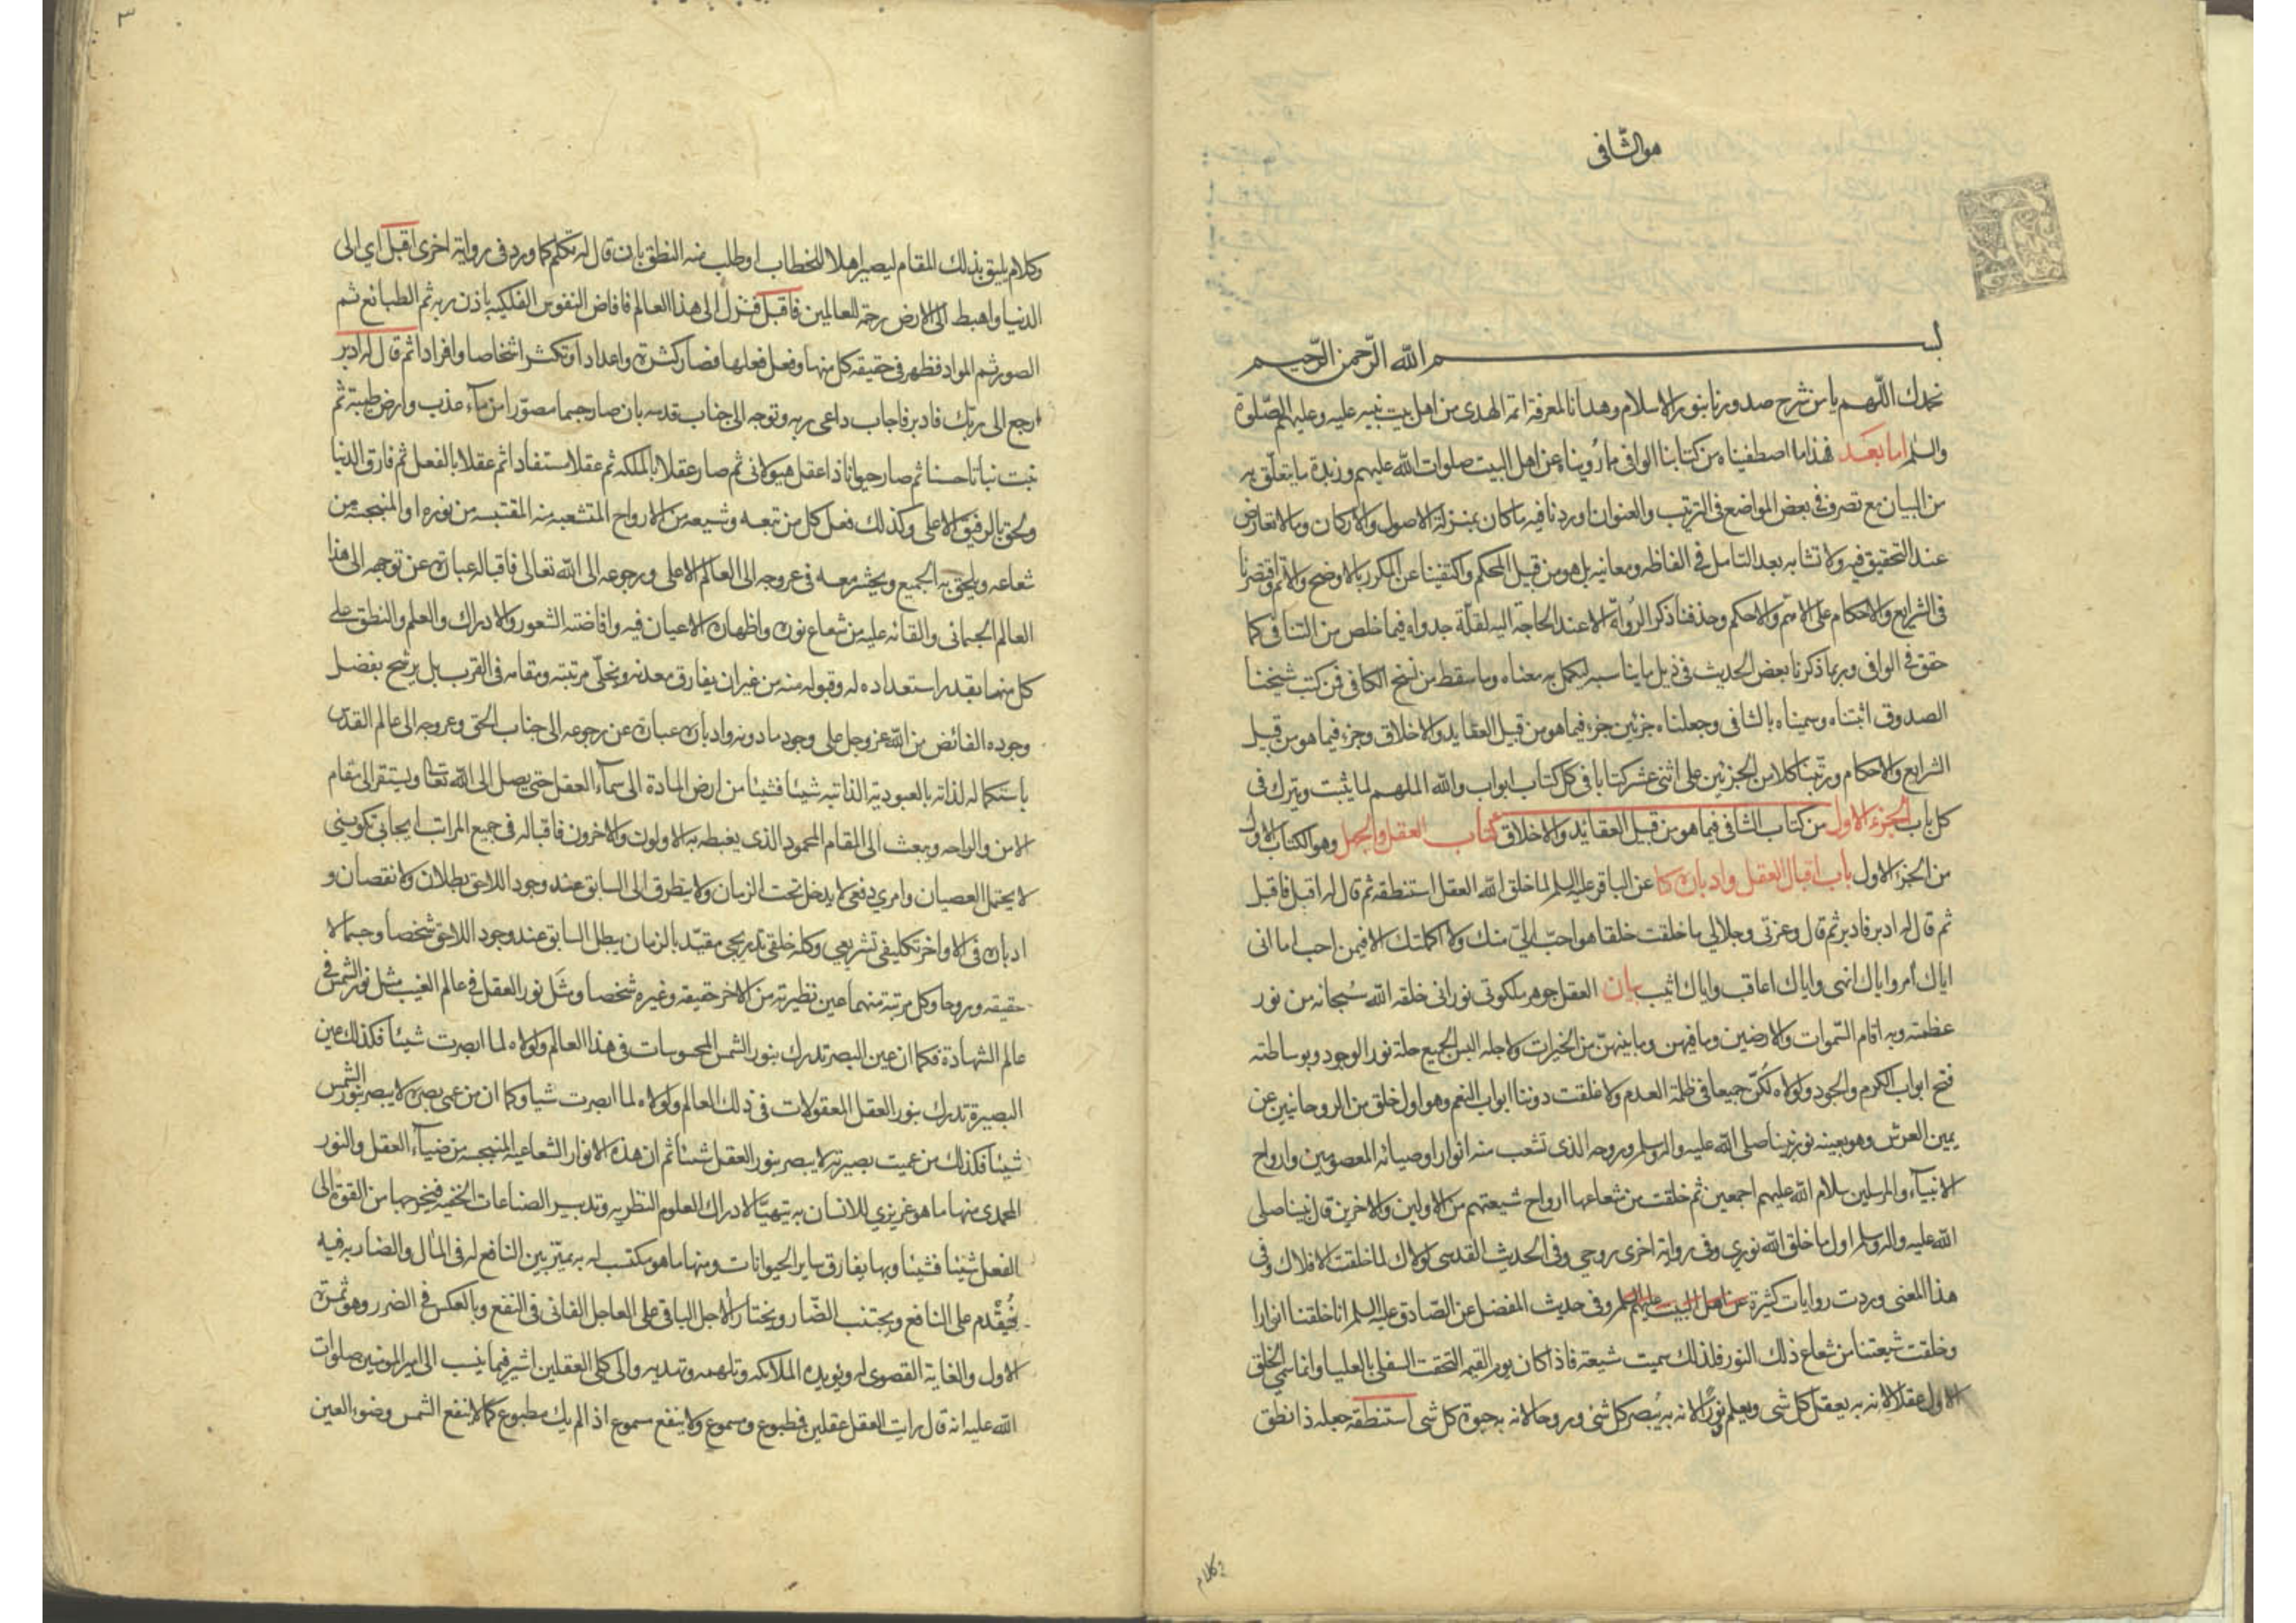 هو الشافى
بسم الله الرحمن الرحيم
نحمدك اللهم يا من شرح صدورنا بنور الاسلام وهدانا لمعرفة ائمة الهدى من اهل بيت نبيه عليه وعليهم الصلوة
والسلم اما بعد فهذا ما اصطفيناه من كتابنا الوافى مما رويناه عن اهل البيت صلوات الله عليهم وزبدة ما يتعلق به
من البيان مع تصرف فى بعض المواضع فى الترتيب والعنوان اوردنا فيه ما كان بمنزلة الاصول والاركان وما لا تعارض
عند التحقيق فيه ولا تشابه بعد التامل فى الفاظه ومعانيه بل هو من قبيل المحكم واكتفينا عن المكرر بالاوضح والاتم واقتصرنا
فى الشرايع والاحكام على الاهم والاحكم وحذفنا ذكر الرواة الا عند الحاجة اليه لقلة جدواه فيما خلص من التنافى كما
حقق فى الوافى وربما ذكرنا بعض الحديث فى ذيل ما يناسبه ليكمل به معناه وما سقط من نسخ الكافى فمن كتب شيخنا
الصدوق اثبتناه وسميناه بالشافى وجعلناه جزئين جزء فيما هو من قبيل العقايد والاخلاق وجزء فيما هو من قبيل
الشرايع والاحكام ورتبنا كلا من الجزئين على اثنى عشر كتابا فى كل كتاب ابواب والله الملهم لما يثبت ويترك فى
كل باب الجزء الاول من كتاب الشافى فيما هو من قبيل العقائد والاخلاق كتاب العقل والجهل وهو الكتاب الاول
من الجزء الاول باب اقبال العقل وادباره كا عن الباقر عليه السلم لما خلق الله العقل استنطقه ثم قال له اقبل فاقبل
ثم قال له ادبر فادبر ثم قال وعزتى وجلالي ما خلقت خلقا هو احب الي منك ولا اكملتك الا فيمن احب اما انى
اياك آمر واياك انهى واياك اعاقب واياك اثيب بيان العقل جوهر ملكوتى نورانى خلقه الله سبحانه من نور
عظمته وبه اقام السموات والارضين وما فيهن وما بينهن من الخيرات ولاجله البس الجميع حلة نور الوجود وبوساطته
فتح ابواب الكرم والجود ولولاه لكن جميعا فى ظلمة العدم ولاغلقت دوننا ابواب النعم وهو اول خلق من الروحانيين عن
يمين العرش وهو بعينه نور نبينا صلى الله عليه واله وسلم وروحه الذى تشعب منه انوار اوصيائه المعصومين وارواح
الانبياء والمرسلين سلام الله عليهم اجمعين ثم خلقت من شعاعها ارواح شيعتهم من الاولين والاخرين قال نبينا صلى
الله عليه واله وسلم اول ما خلق الله نوري وفى رواية اخرى روحي وفى الحديث القدسى لولاك لما خلقت الافلاك وفى
هذا المعنى وردت روايات كثيرة عن اهل البيت عليهم السلم وفى حديث المفضل عن الصادق عليه السلم انا خلقنا انوارا
وخلقت شيعتنا من شعاع ذلك النور فلذلك سميت شيعة فاذا كان يوم القيمه التحقت السفلى بالعليا وانما سمي الخلق
الاول عقلا لانه به يعقل كل شى ويعلم نورا لانه به يبصر كل شئ وروحا لانه به حيوة كل شى استنطقه جعله ذا نطق
وكلام
٣
وكلام يليق بذلك المقام ليصير اهلا للخطاب او طلب منه النطق بان قال له تكلم كما ورد فى رواية اخرى اقبل اي الى
الدنيا واهبط الى الارض رحمة للعالمين فاقبل فنزل الى هذا العالم فافاض النفوس الفلكيه باذن ربه ثم الطبائع ثم
الصور ثم المواد فظهر فى حقيقة كل منها وفعل فعلها فصار كثرة واعدادا وتكثر اشخاصا وافرادا ثم قال له ادبر
ارجع الى ربك فادبر فاجاب داعى ربه وتوجه الى جناب قدسه بان صار جسما مصورا من ماء عذب وارض طيبة ثم
نبت نباتا حسنا ثم صار حيوانا ذا عقل هيولانى ثم صار عقلا بالملكه ثم عقلا مستفادا ثم عقلا بالفعل ثم فارق الدنيا
ولحق بالرفيق الاعلى وكذلك فعل كل من تبعه وشيعه من الارواح المتشعبه منه المقتبسه من نوره او المنبجسه من
شعاعه ويلحق به الجميع ويحشر معه فى عروجه الى العالم الاعلى ورجوعه الى الله تعالى فاقباله عبارة عن توجهه الى هذا
العالم الجسمانى والقائه عليه من شعاع نوره واظهاره الاعيان فيه وافاضته الشعور والادراك والعلم والنطق على
كل منها بقدر استعداده له وقبوله منه من غير ان يفارق معدنه ويخلي مرتبته ومقامه فى القرب بل يرشح بفضل
وجوده الفائض من الله عز وجل على وجود ما دونه وادباره عبارة عن رجوعه الى جناب الحق وعروجه الى عالم القدس
باستكماله لذاته بالعبودية الذاتيه شيئا فشيئا من ارض المادة الى سماء العقل حتى يصل الى الله تعالى ويستقر الى مقام
الامن والراحه ويبعث الى المقام المحمود الذى يغبطه به الاولون والاخرون فاقباله فى جميع المراتب ايجابى تكوينى
لا يحتمل العصيان وامري دفعى لا يدخل تحت الزمان ولا يتطرق الى السابق عند وجود اللاحق بطلان ولا نقصان و
ادباره فى الاواخر تكليفى تشريعي وكله خلقى تدريجي مقيد بالزمان يبطل السابق عند وجود اللاحق شخصا وجسما لا
حقيقه وروحا وكل مرتبة منهما عين نظيرته من الاخر حقيقه وغيره شخصا ومثل نور العقل فى عالم الغيب مثل نور الشمس فى
عالم الشهادة فكما ان عين البصر تدرك بنور الشمس المحسوسات فى هذا العالم ولولاه لما ابصرت شيئا فكذلك عين
البصيرة تدرك بنور العقل المعقولات فى ذلك العالم ولولاه لما ابصرت شيا وكما ان من عمى بصره لا يبصر بنور الشمس
شيئا فكذلك من عميت بصيرته لا يبصر بنور العقل شيئا ثم ان هذه الانوار الشعاعيه المنبجسه من ضياء العقل والنور
المحمدى منها ما هو غريزي للانسان به يتهيأ لادراك العلوم النظريه وتدبير الصناعات الخفيه فيخرجها من القوة الى
الفعل شيئا فشيئا وبها يفارق ساير الحيوانات ومنها ما هو مكتسب له به يميز بين النافع له فى المال والضار به فيه
فيقدم على النافع ويجتنب الضار ويختار الاجل الباقى على العاجل الفانى فى النفع وبالعكس فى الضرر وهو ثمرة
الاول والغاية القصوى له ويؤيده الملائكه وتلهمه وتهديه والى كلى العقلين اشير فيما ينسب الى امير المومنين صلوات
الله عليه انه قال رايت العقل عقلين فمطبوع ومسموع ولا ينفع مسموع اذا لم يك مطبوع كما لا ينفع الشمس وضوء العين